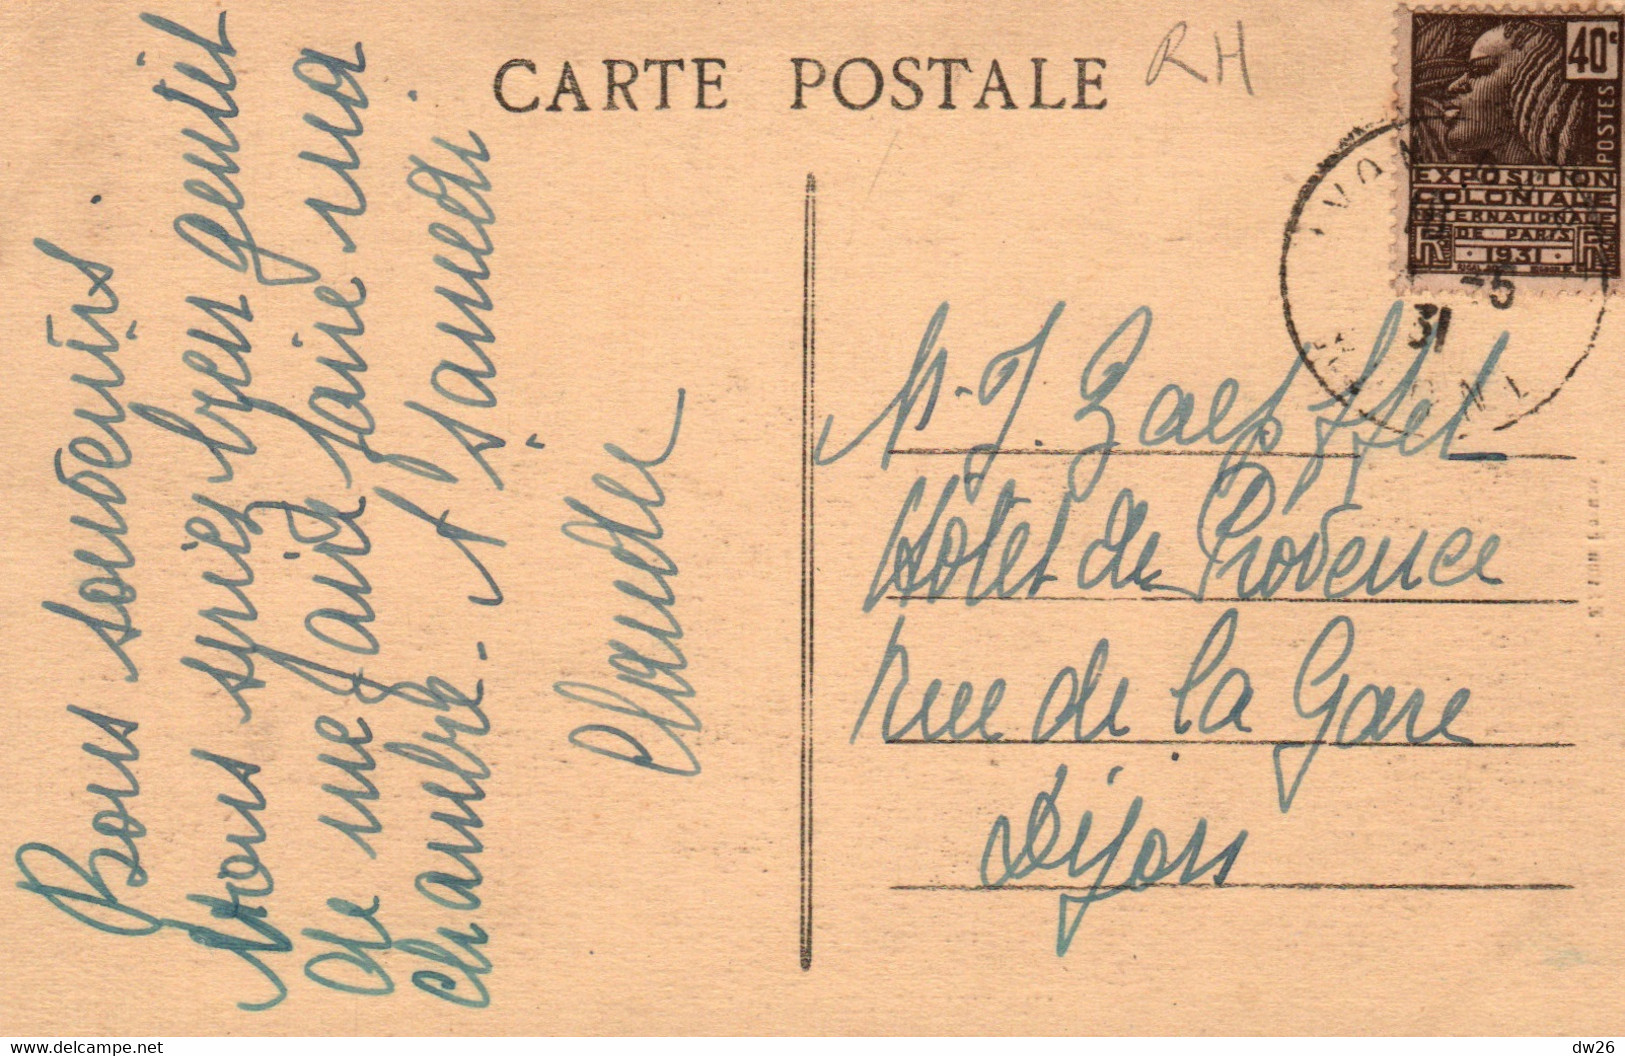 CARTE POSTALE
RH
40c
POSTES
EXPOSITION
COLONIALE
INTERNATIONALE
DE PARIS
1931
-5
31
Bons souvenirs.
Vous seriez bien gentil
de me faire ma
chambre - A samedi
Claudie
M-J. Zaepffel
Hôtel de Provence
rue de la Gare
Dijon
www.delcampe.net
dw26